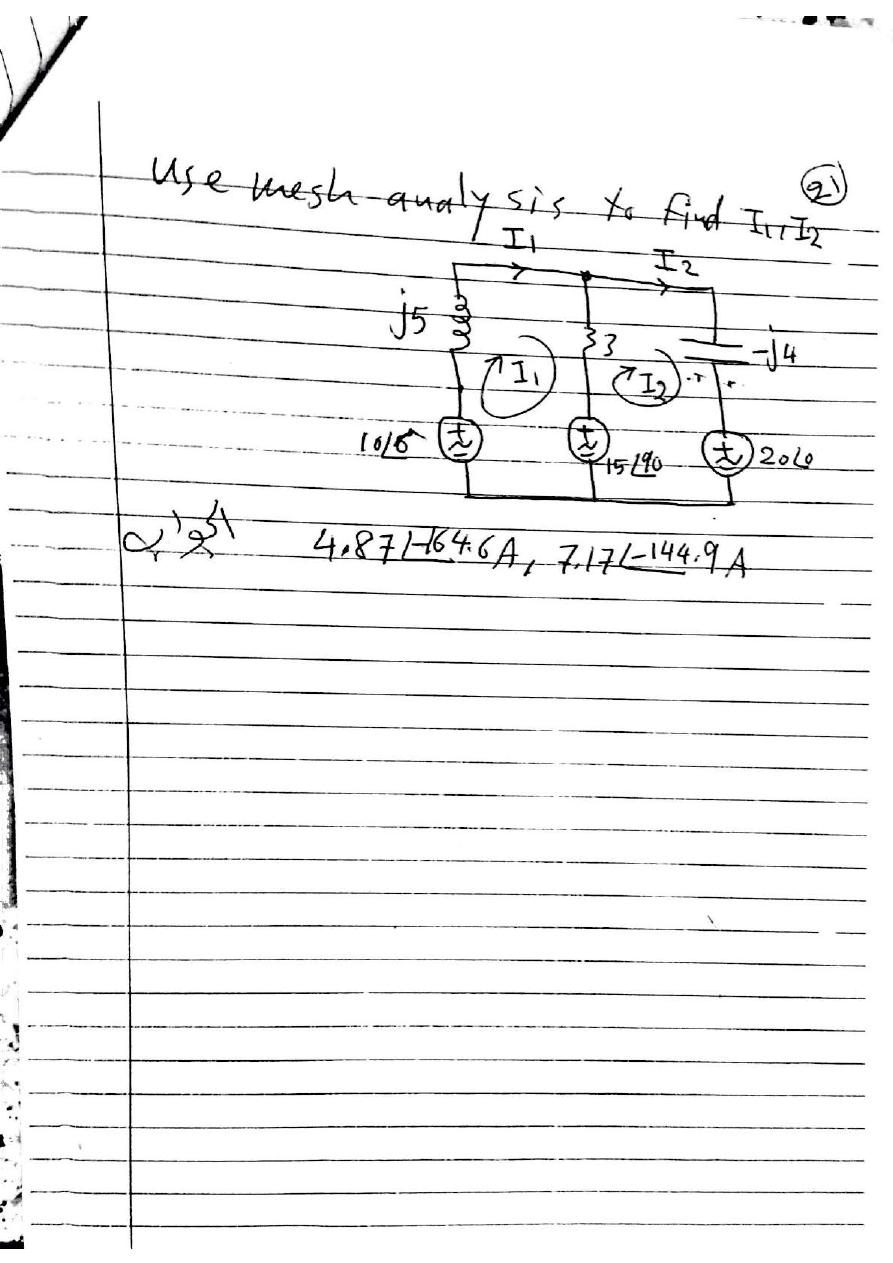 21
Use mesh analysis to find I1, I2
I1
I2
j5
3
-j4
I1
I2
10∠0
15∠90
20∠0
4.87∠-164.6 A, 7.17∠-144.9 A